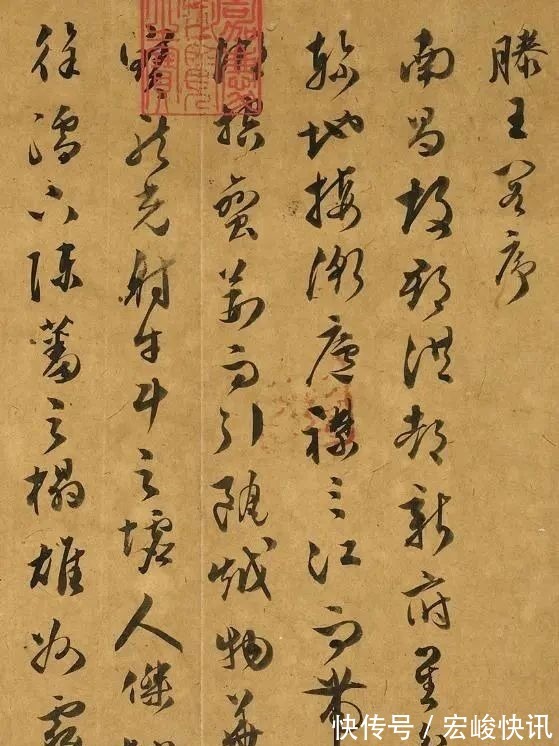 滕王閣序
南昌故郡洪都新府星
軫地接衡廬襟三江而帶
湖控蠻荊而引甌越物華
寶龍光射牛斗之墟人傑
徐孺下陳蕃之榻雄州霧
快传号 / 宏峻快讯